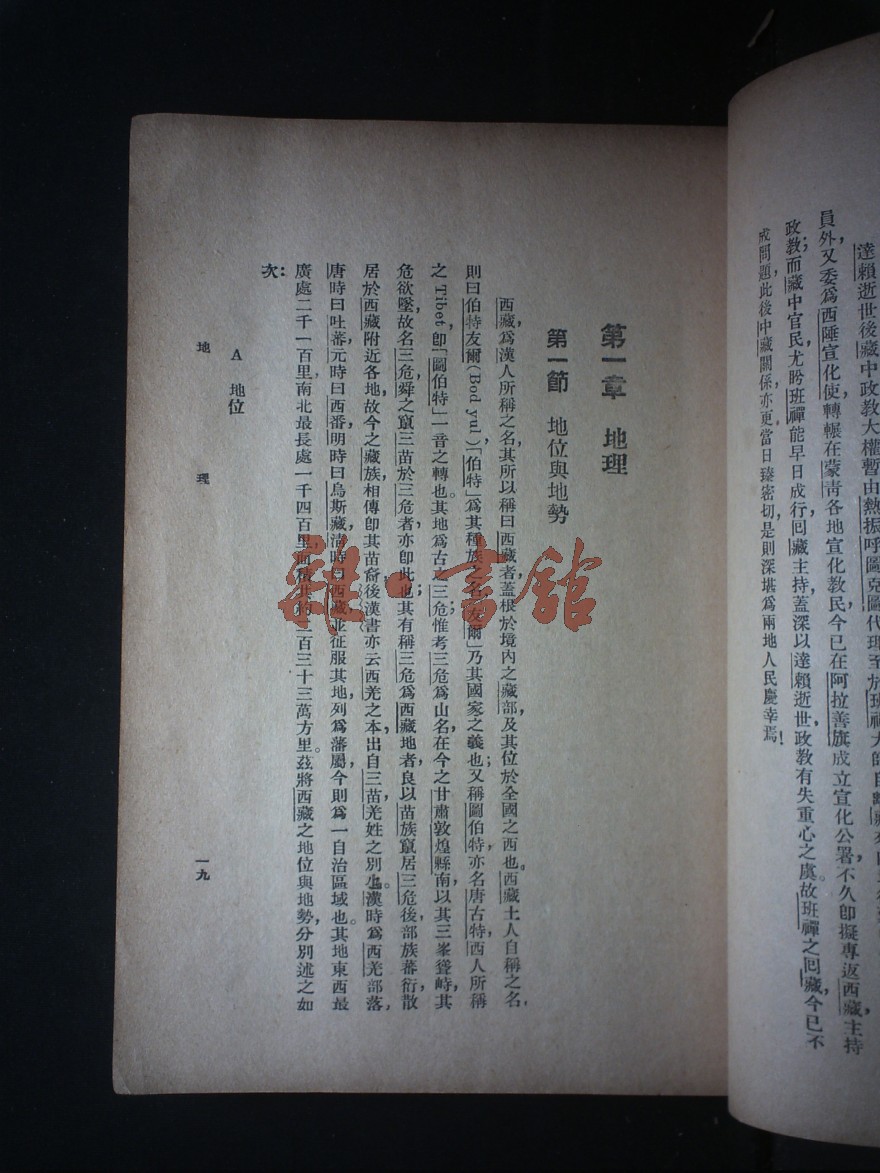 達賴逝世後藏中政教大權暫由熱振呼圖克圖代理至於班禪大師自
員外,又委爲西陲宣化使,轉輾在蒙青各地宣化教民,今已在阿拉善旗成立宣化公署,不久即擬專返西藏,主持
政教;而藏中官民,尤盼班禪能早日成行,囘藏主持,蓋深以達賴逝世,政教有失重心之虞。故班禪之囘藏,今已不
成問題,此後中藏關係,亦更當日臻密切,是則深堪爲兩地人民慶幸焉!
第一章 地理
第一節 地位與地勢
西藏爲漢人所稱之名,其所以稱曰西藏者,蓋根於境內之藏部,及其位於全國之西也。西藏土人自稱之名,
則曰伯特友爾(Bod yul),「伯特」爲其種族之名,「友爾」乃其國家之義也;又稱圖伯特,亦名唐古特,西人所稱
之 Tibet,即「圖伯特」一音之轉也。其地爲古之三危,惟考三危爲山名,在今之甘肅敦煌縣南,以其三峯聳峙,其
危欲墜,故名三危,舜之竄三苗於三危者,亦即此也;其有稱三危爲西藏地者,良以苗族竄居三危後,部族蕃衍,散
居於西藏附近各地,故今之藏族,相傳即其苗裔,後漢書亦云西羌之本,出自三苗,羌姓之別也。漢時爲西羌部落,
唐時曰吐蕃,元時曰西番,明時曰烏斯藏,清時曰西藏,並征服其地,列爲藩屬,今則爲一自治區域也。其地東西最
廣處二千一百里,南北最長處一千四百里,面積共約二百三十三萬方里。茲將西藏之地位與地勢,分別述之如
次:
A 地位
地 理
一九
雜·書館